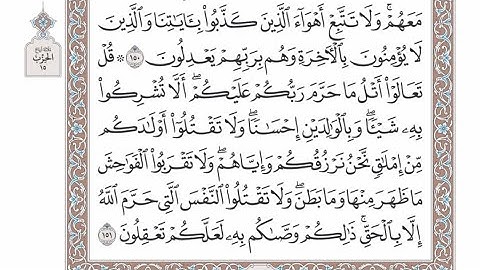 مَعَهُمْۚ وَلَا تَتَّبِعْ أَهْوَآءَ ٱلَّذِينَ كَذَّبُوا۟ بِـَٔايَـٰتِنَا وَٱلَّذِينَ
لَا يُؤْمِنُونَ بِٱلْـَٔاخِرَةِ وَهُم بِرَبِّهِمْ يَعْدِلُونَ ١٥٠ ۞ قُلْ
تَعَالَوْا۟ أَتْلُ مَا حَرَّمَ رَبُّكُمْ عَلَيْكُمْۖ أَلَّا تُشْرِكُوا۟
بِهِۦ شَيْـًٔاۖ وَبِٱلْوَٰلِدَيْنِ إِحْسَـٰنًاۖ وَلَا تَقْتُلُوٓا۟ أَوْلَـٰدَكُم
مِّنْ إِمْلَـٰقٍۖ نَّحْنُ نَرْزُقُكُمْ وَإِيَّاهُمْۖ وَلَا تَقْرَبُوا۟ ٱلْفَوَٰحِشَ
مَا ظَهَرَ مِنْهَا وَمَا بَطَنَۖ وَلَا تَقْتُلُوا۟ ٱلنَّفْسَ ٱلَّتِى حَرَّمَ ٱللَّهُ
إِلَّا بِٱلْحَقِّۚ ذَٰلِكُمْ وَصَّىٰكُم بِهِۦ لَعَلَّكُمْ تَعْقِلُونَ ١٥١
الحِزْب
١٥